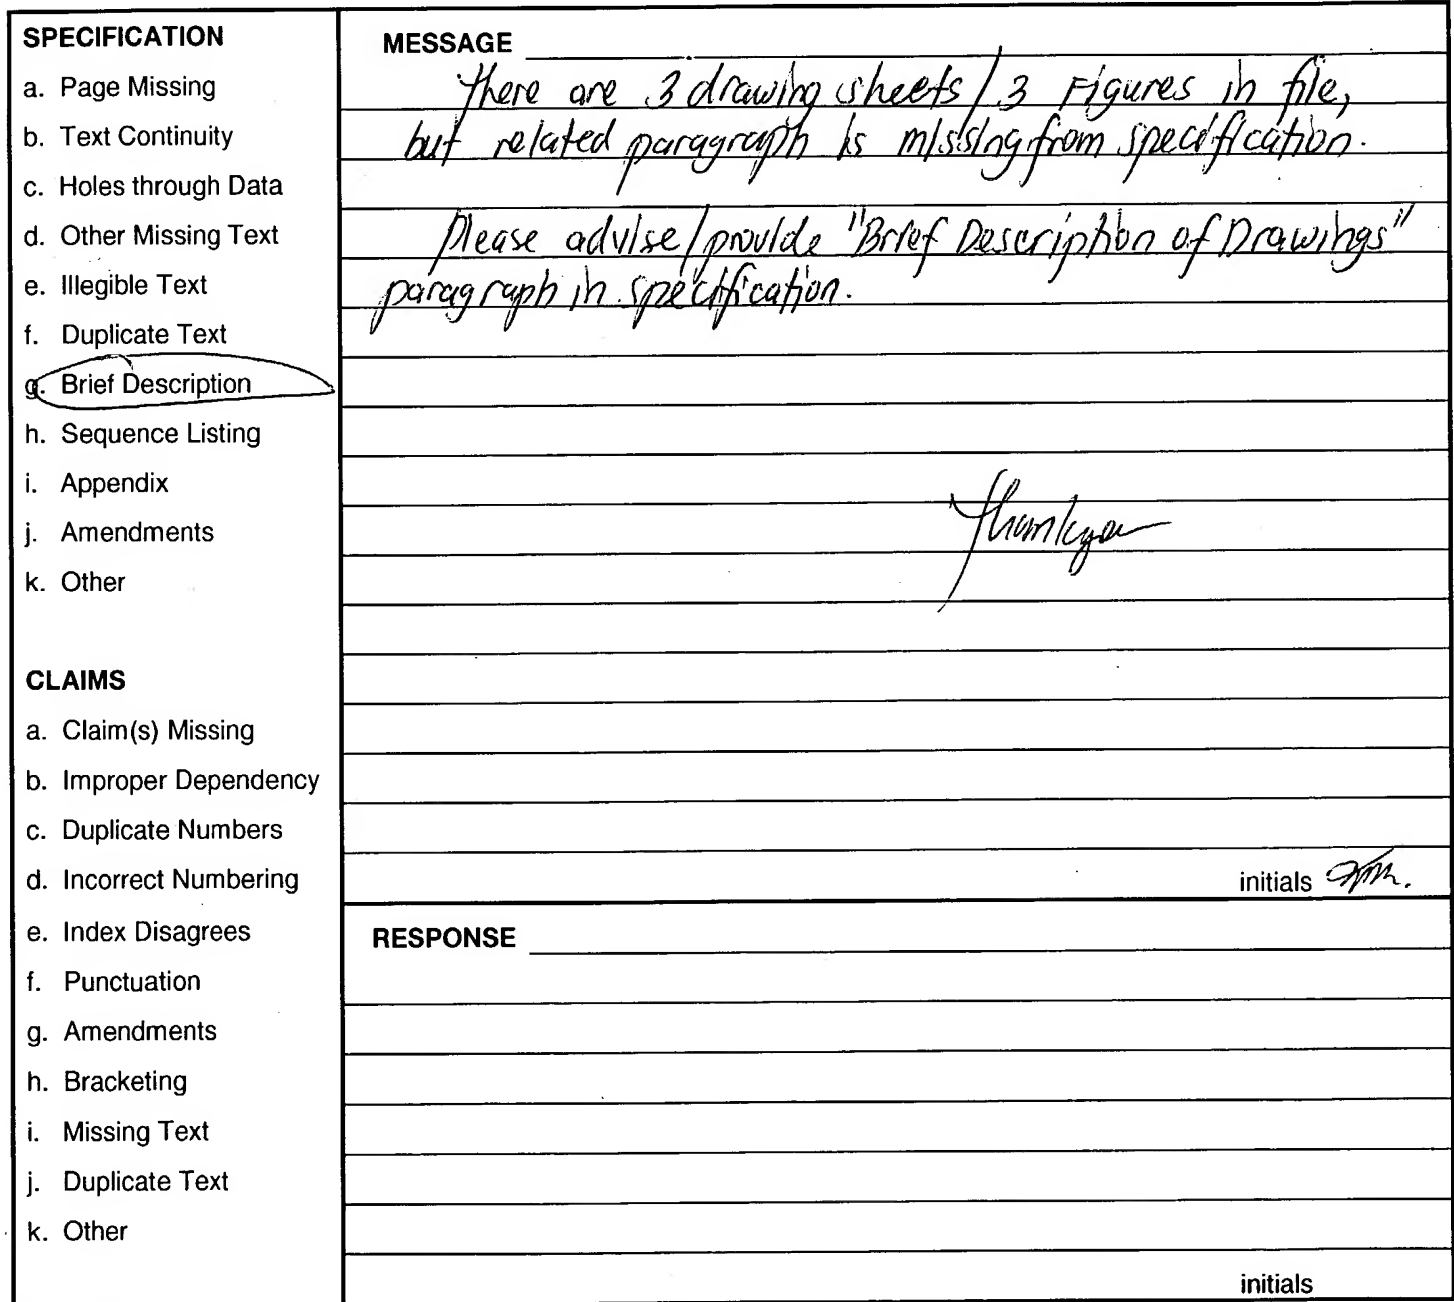 SPECIFICATION
a. Page Missing
b. Text Continuity
c. Holes through Data
d. Other Missing Text
e. Illegible Text
f. Duplicate Text
g. Brief Description
h. Sequence Listing
i. Appendix
j. Amendments
k. Other
CLAIMS
a. Claim(s) Missing
b. Improper Dependency
c. Duplicate Numbers
d. Incorrect Numbering
e. Index Disagrees
f. Punctuation
g. Amendments
h. Bracketing
i. Missing Text
j. Duplicate Text
k. Other
MESSAGE
There are 3 drawing sheets / 3 Figures in file,
but related paragraph is missing from specification.
Please advise / provide "Brief Description of Drawings"
paragraph in specification.
Thank you
initials
RESPONSE
initials